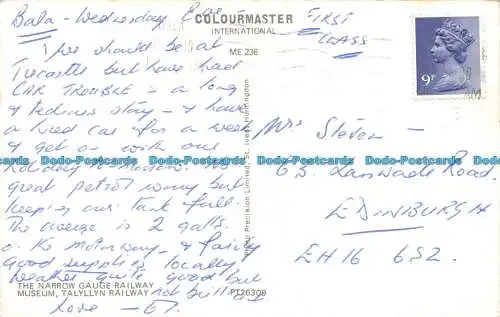 Bala - Wednesday Eve -
COLOURMASTER
INTERNATIONAL
ME 236
FIRST
CLASS
9P
We should be at
but have had
CAR TROUBLE - a long
& tedious story - & have
a hired car for a week
& get on with our
holiday
great petrol worry but
keeping our tank full.
The average is 2 galls.
on the motorway - & fairly
good supplies locally
weather quite good but
not brilliant
Love -
Mrs Steven -
63 Lanswade Road.
EDINBURGH
EH16 6SZ.
Photo Precision Limited, St. Ives, Huntingdon
THE NARROW GAUGE RAILWAY
MUSEUM, TALYLLYN RAILWAY
PT26309
Dodo-Postcards Dodo-Postcards Dodo-Postcards Dodo-Postcards